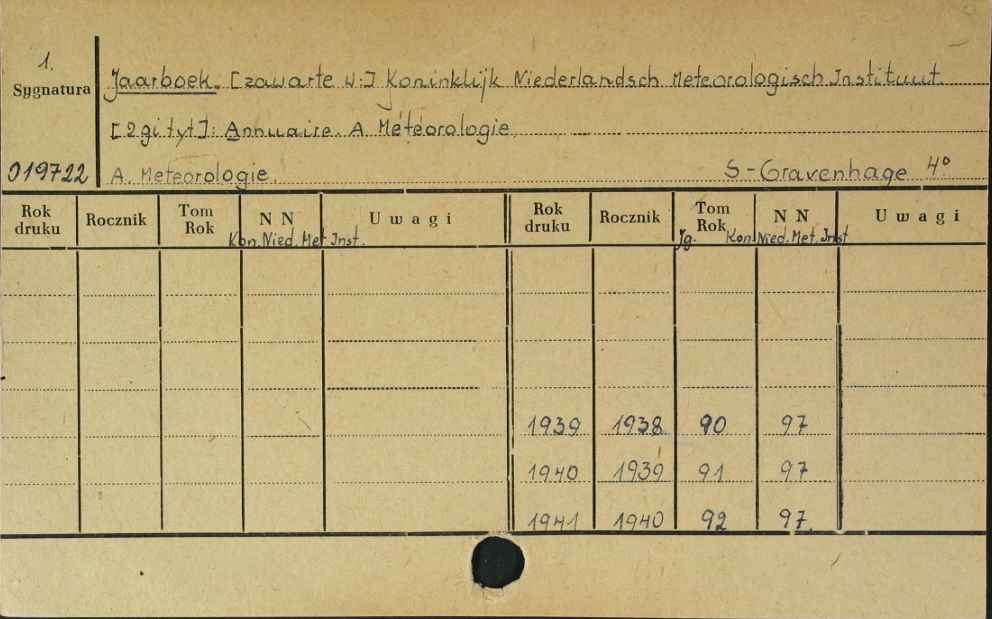 1.
Sygnatura
Jaarboek. [zawarte w:] Koninklijk Niederlandsch Meteorologisch Instituut.
[2gi tyt]: Annuaire. A Météorologie.
019722 A. Meteorologie. S-Gravenhage 4°
Rok druku Rocznik Tom Rok N N Uwagi Rok druku Rocznik Tom Rok N N Uwagi
Kon. Nied. Met. Inst. Jg. Kon. Nied. Met. Inst
1939 1938 90 97
1940 1939 91 97
1941 1940 92 97.